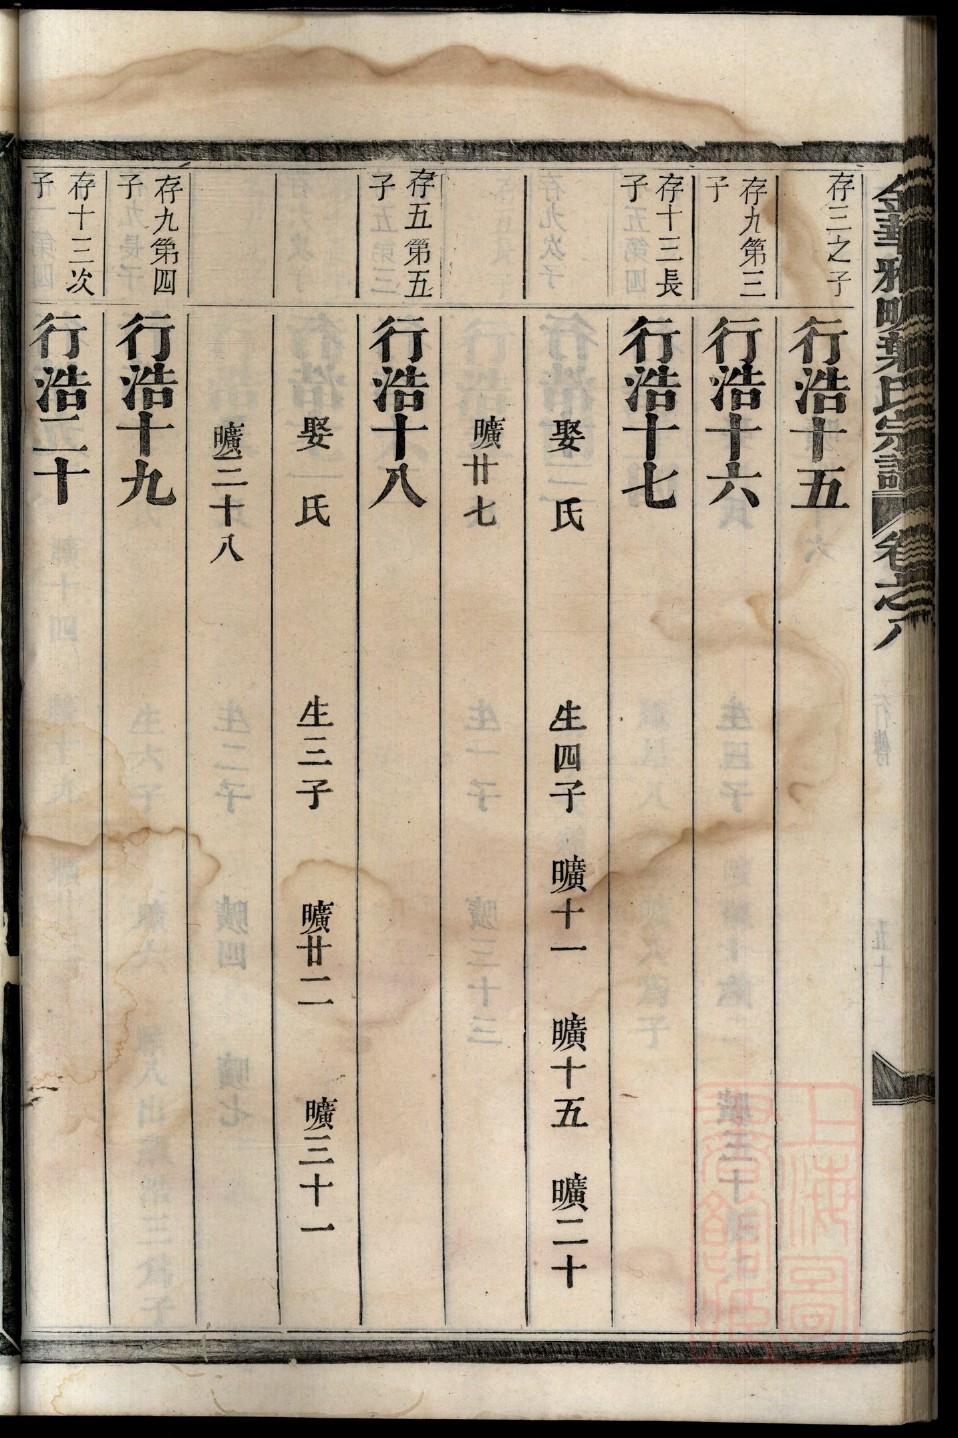 金華雅畈葉氏宗譜 卷之八
存三之子
行浩十五
存九第三子
行浩十六
存十三長子
行浩十七
娶 氏 生四子 曠十一 曠十五 曠二十
曠廿七
存五第五子
行浩十八
娶 氏 生三子 曠廿二 曠三十一
曠二十八
存九第四子
行浩十九
存十三次子
行浩二十
上海圖書館藏